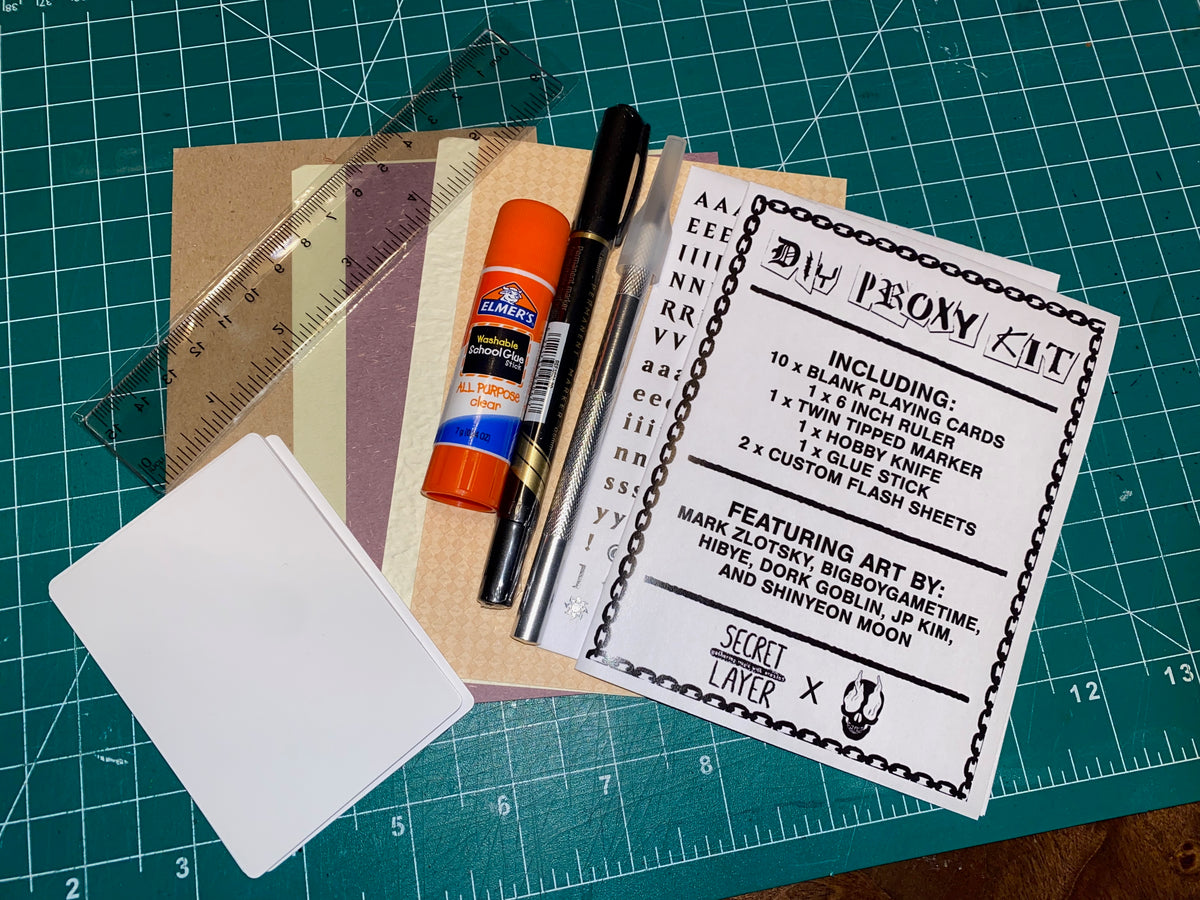 DIY PROXY KIT
INCLUDING:
10 x BLANK PLAYING CARDS
1 x 6 INCH RULER
1 x TWIN TIPPED MARKER
1 x HOBBY KNIFE
1 x GLUE STICK
2 x CUSTOM FLASH SHEETS
FEATURING ART BY:
MARK ZLOTSKY, BIGBOYGAMETIME,
HIBYE, DORK GOBLIN, JP KIM,
AND SHINYEON MOON
SECRET
LAYER
X
ELMER'S
Washable
School Glue
Stick
ALL PURPOSE
clear
Permanent marker
AAA
EEE
IIII
NN
RR
VV
aaa
eee
iii
nn
sss
yy
!
2
3
5
6
7
8
12
13